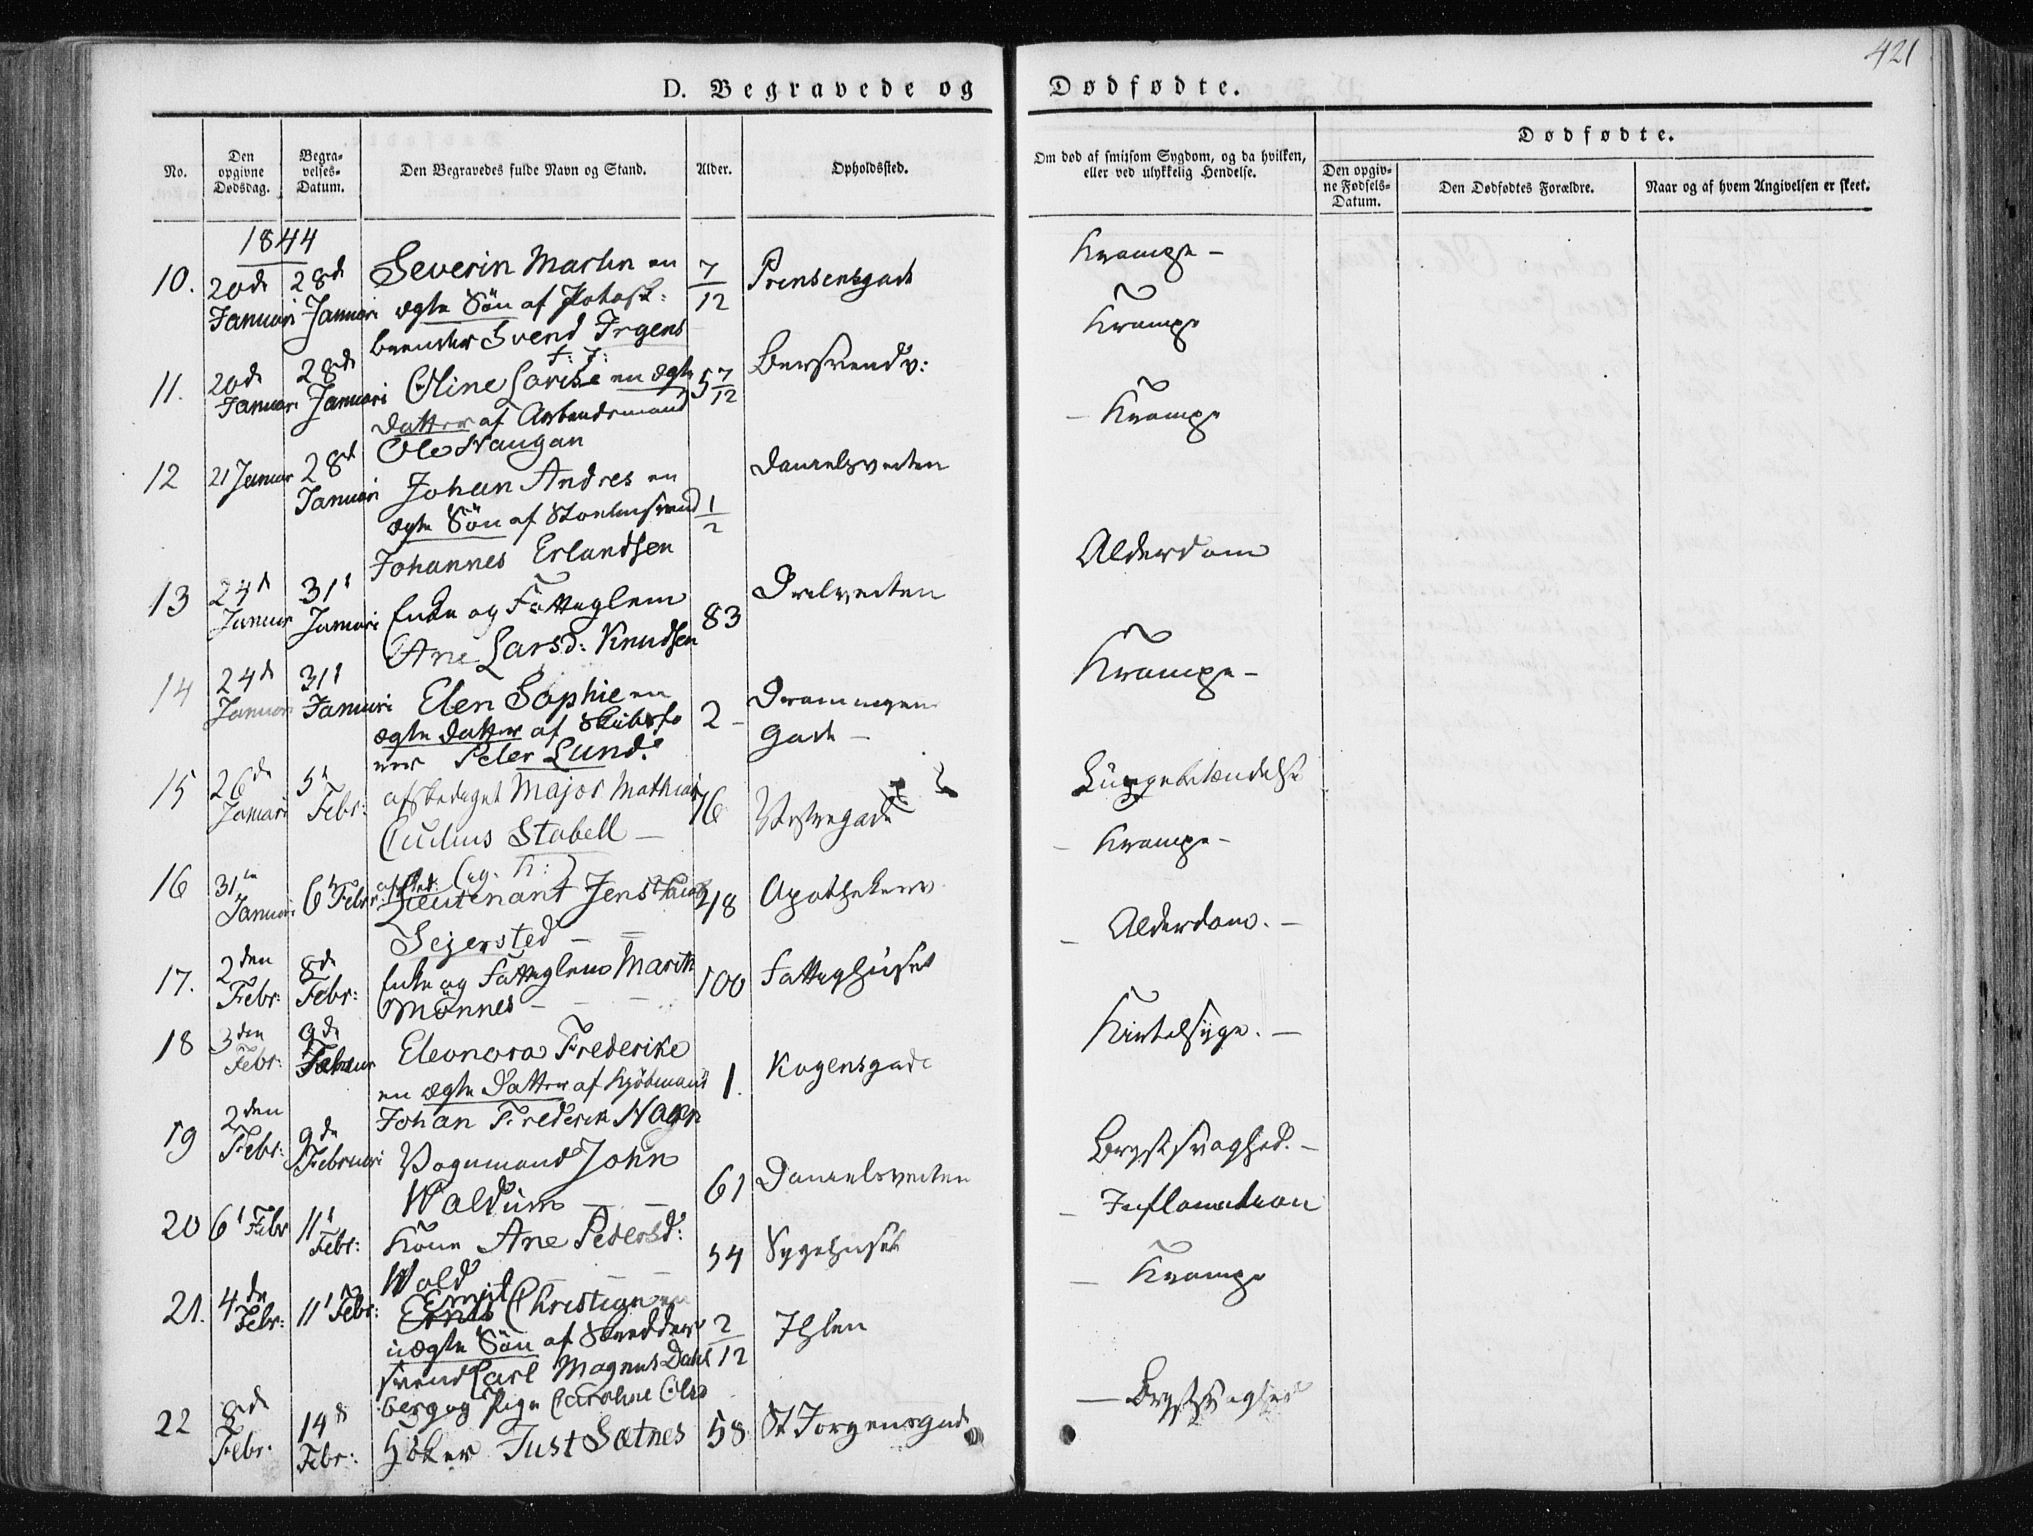 421
D. Begravede og Dødfødte.
No.
Den opgivne Dødsdag.
Begravelses-Datum.
Den Begravedes fulde Navn og Stand.
Alder.
Opholdssted.
Om død af smitsom Sygdom, og da hvilken, eller ved ulykkelig Hendelse.
Dødfødte.
Den opgivne Fødsels-Datum.
Den Dødfødtes Forældre.
Naar og af hvem Angivelsen er skeet.
1844
10. 20de Januari 28d Januari
Severin Martin en
ægte Søn af
Svend Irgens
7/12 Prinsensgade
Krampe -
11. 20de Januari 28de Januari
Oline Lovise en ægte
Datter af Arbeidsmand
Ole Haugan
5 7/12
Krampe
12 21 Januar 28d Januari
Johan Andres en
ægte Søn af
Johannes Erlandsen
1/2 Danielsveiten
- Krampe
13 24d Januar 31t Januari
Enke og Fatteglem
Ane Larsd: Knudsen
83
Alderdom
14 24d Januari 31t Januari
Elen Sophie en
ægte Datter af
Peter Lund
2 - Dronningens
Gade -
Krampe -
15 26de Januari 5t Febr:
afskediget Major Mathias
Stabell -
76
Lungebetændelse
16 31te Januari 6t Febr:
afsked. Lieutenant Jens
Sejersted - -
48 Apothekerv
- Krampe -
17. 2den Febr: 8de Febr:
Enke og Fatteglem Marith
Mønnes - - -
100 Fattighuset
- Alderdom. -
18 3den Febr: 9de Februar
Eleonora Frederike
en ægte Datter af Kjøbmand
Johan Frederik Hagen
1. Kogensgade
Kirtelsyge. -
19 2den Febr: 9de Februari
Vognmand John
Waldum - -
61 Danielsveiten
Brystsvaghed. -
20 6t Febr 11t Febr:
Kone Ane Pedersd:
Wold - - -
54 Sygehuset
- Inflamation
21. 4de Febr: 11t Febr:
Emil Christian en
uægte Søn af Skrædder
svend Carl Magnus Dahl
berg og Pige Caroline Olsd
2/12 Ihlen
- Krampe
22 8de Febr. 14de Febr:
Høker Just Sætnes
58 St Jørgensgade
- Brystsyghed